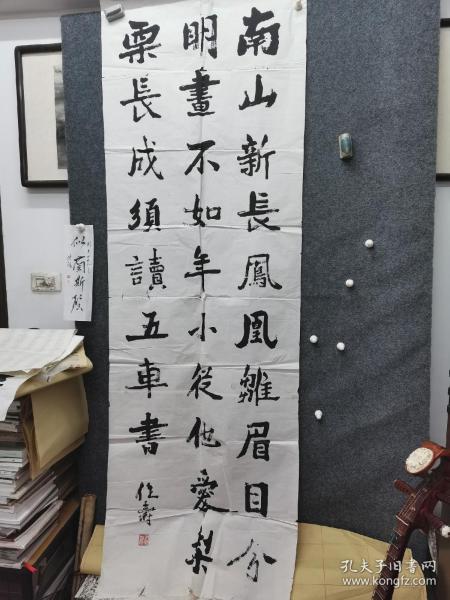 南山新長鳳凰雛眉目分
明畫不如年小從他愛梨
栗長成須讀五車書
任壽
似蘭斯馨
孔夫子旧书网
www.kongfz.com